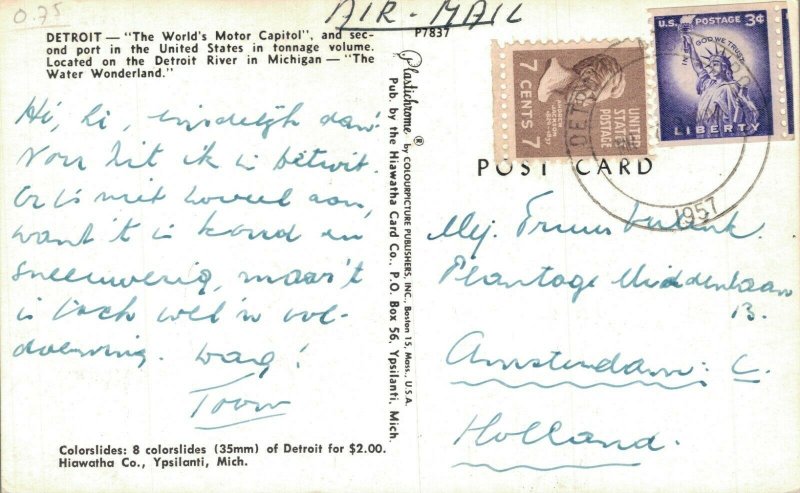 0.75
AIR-MAIL
DETROIT — "The World's Motor Capitol", and sec-
ond port in the United States in tonnage volume.
Located on the Detroit River in Michigan — "The
Water Wonderland."
P7837
Hi, hi, eindelijk dan!
Nou zit ik in Detroit.
Er is niet hoveel aan,
want 't is koud en
sneeuwerig, maar 't
is toch wel 'n vol-
doening. Daag!
Toon
Colorslides: 8 colorslides (35mm) of Detroit for $2.00.
Hiawatha Co., Ypsilanti, Mich.
Plastichrome ® by COLOURPICTURE PUBLISHERS, INC., Boston 15, Mass., U.S.A.
Pub. by the Hiawatha Card Co., P.O. Box 56, Ypsilanti, Mich.
7 CENTS 7
ANDREW
JACKSON
1829-1837
UNITED
STATES
POSTAGE
U.S. POSTAGE 3¢
IN GOD WE TRUST
LIBERTY
DETROIT
1957
POST CARD
Mej. Truus
Plantage Middenlaan
Amsterdam: C.
Holland.